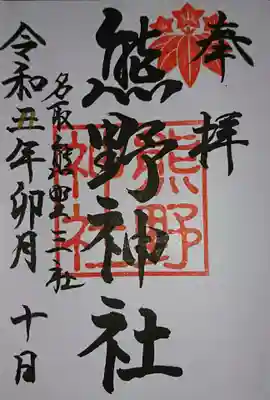 奉拝
熊野神社
熊野
神社
名取熊野三社
令和五年卯月 十日